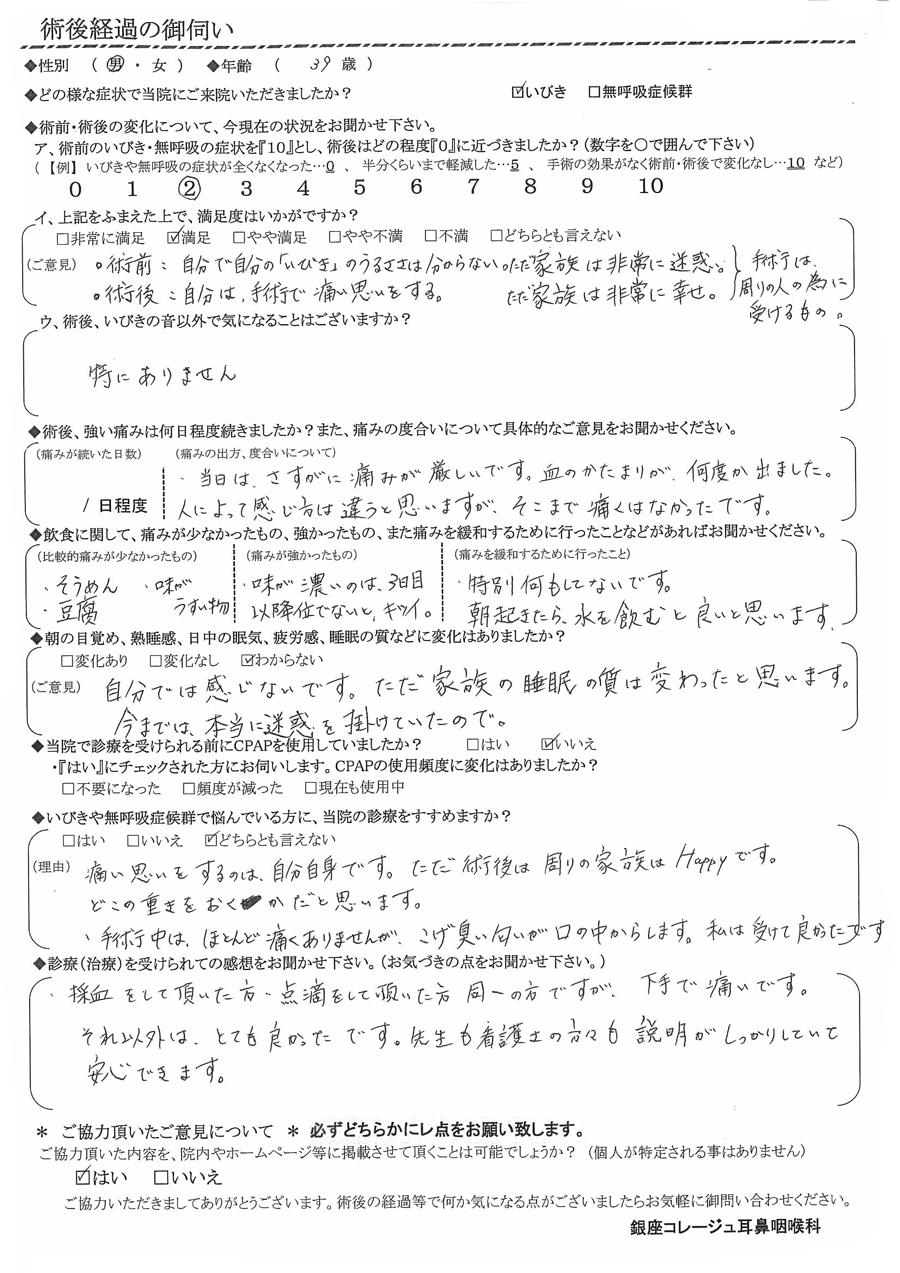 術後経過の御伺い
◆性別 ( 男 ・ 女 ) ◆年齢 ( 39 歳 )
◆どの様な症状で当院にご来院いただきましたか? ☑いびき □無呼吸症候群
◆術前・術後の変化について、今現在の状況をお聞かせ下さい。
ア、術前のいびき・無呼吸の症状を『10』とし、術後はどの程度『0』に近づきましたか?(数字を○で囲んで下さい)
(【例】いびきや無呼吸の症状が全くなくなった…0 、 半分くらいまで軽減した…5 、 手術の効果がなく術前・術後で変化なし…10 など)
0 1 ② 3 4 5 6 7 8 9 10
イ、上記をふまえた上で、満足度はいかがですか?
□非常に満足 ☑満足 □やや満足 □やや不満 □不満 □どちらとも言えない
(ご意見) ○術前:自分で自分の「いびき」のうるささは分からない。ただ家族は非常に迷惑。
○術後:自分は、手術で痛い思いをする。 ただ家族は非常に幸せ。
手術は、
周りの人の為に
受けるもの。
ウ、術後、いびきの音以外で気になることはございますか?
特にありません
◆術後、強い痛みは何日程度続きましたか?また、痛みの度合いについて具体的なご意見をお聞かせください。
(痛みが続いた日数) (痛みの出方、度合いについて)
・当日は、さすがに痛みが厳しいです。血のかたまりが、何度か出ました。
1 日程度 人によって感じ方は違うと思いますが、そこまで痛くはなかったです。
◆飲食に関して、痛みが少なかったもの、強かったもの、また痛みを緩和するために行ったことなどがあればお聞かせください。
(比較的痛みが少なかったもの) (痛みが強かったもの) (痛みを緩和するために行ったこと)
・そうめん ・味が ・味が濃いのは、3日目 ・特別何もしてないです。
・豆腐 うすい物 以降位でないと、キツイ。 朝起きたら、水を飲むと良いと思います。
◆朝の目覚め、熟睡感、日中の眠気、疲労感、睡眠の質などに変化はありましたか?
□変化あり □変化なし ☑わからない
(ご意見) 自分では感じないです。ただ家族の睡眠の質は変わったと思います。
今までは、本当に迷惑を掛けていたので。
◆当院で診療を受けられる前にCPAPを使用していましたか? □はい ☑いいえ
・『はい』にチェックされた方にお伺いします。CPAPの使用頻度に変化はありましたか?
□不要になった □頻度が減った □現在も使用中
◆いびきや無呼吸症候群で悩んでいる方に、当院の診療をすすめますか?
□はい □いいえ ☑どちらとも言えない
(理由) 痛い思いをするのは、自分自身です。ただ術後は周りの家族はHappyです。
どこの重きをおくかだと思います。
・手術中は、ほとんど痛くありませんが、こげ臭い匂いが口の中からします。私は受けて良かったです
◆診療(治療)を受けられての感想をお聞かせ下さい。(お気づきの点をお聞かせ下さい。)
・採血をして頂いた方・点滴をして頂いた方同一の方ですが、下手で痛いです。
それ以外は、とても良かったです。先生も看護士の方々も説明がしっかりしていて
安心できます。
* ご協力頂いたご意見について * 必ずどちらかにレ点をお願い致します。
ご協力頂いた内容を、院内やホームページ等に掲載させて頂くことは可能でしょうか? (個人が特定される事はありません)
☑はい □いいえ
ご協力いただきましてありがとうございます。術後の経過等で何か気になる点がございましたらお気軽に御問い合わせください。
銀座コレージュ耳鼻咽喉科